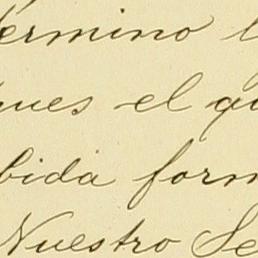 término l
ques el qu
bida form
Nuestro Se